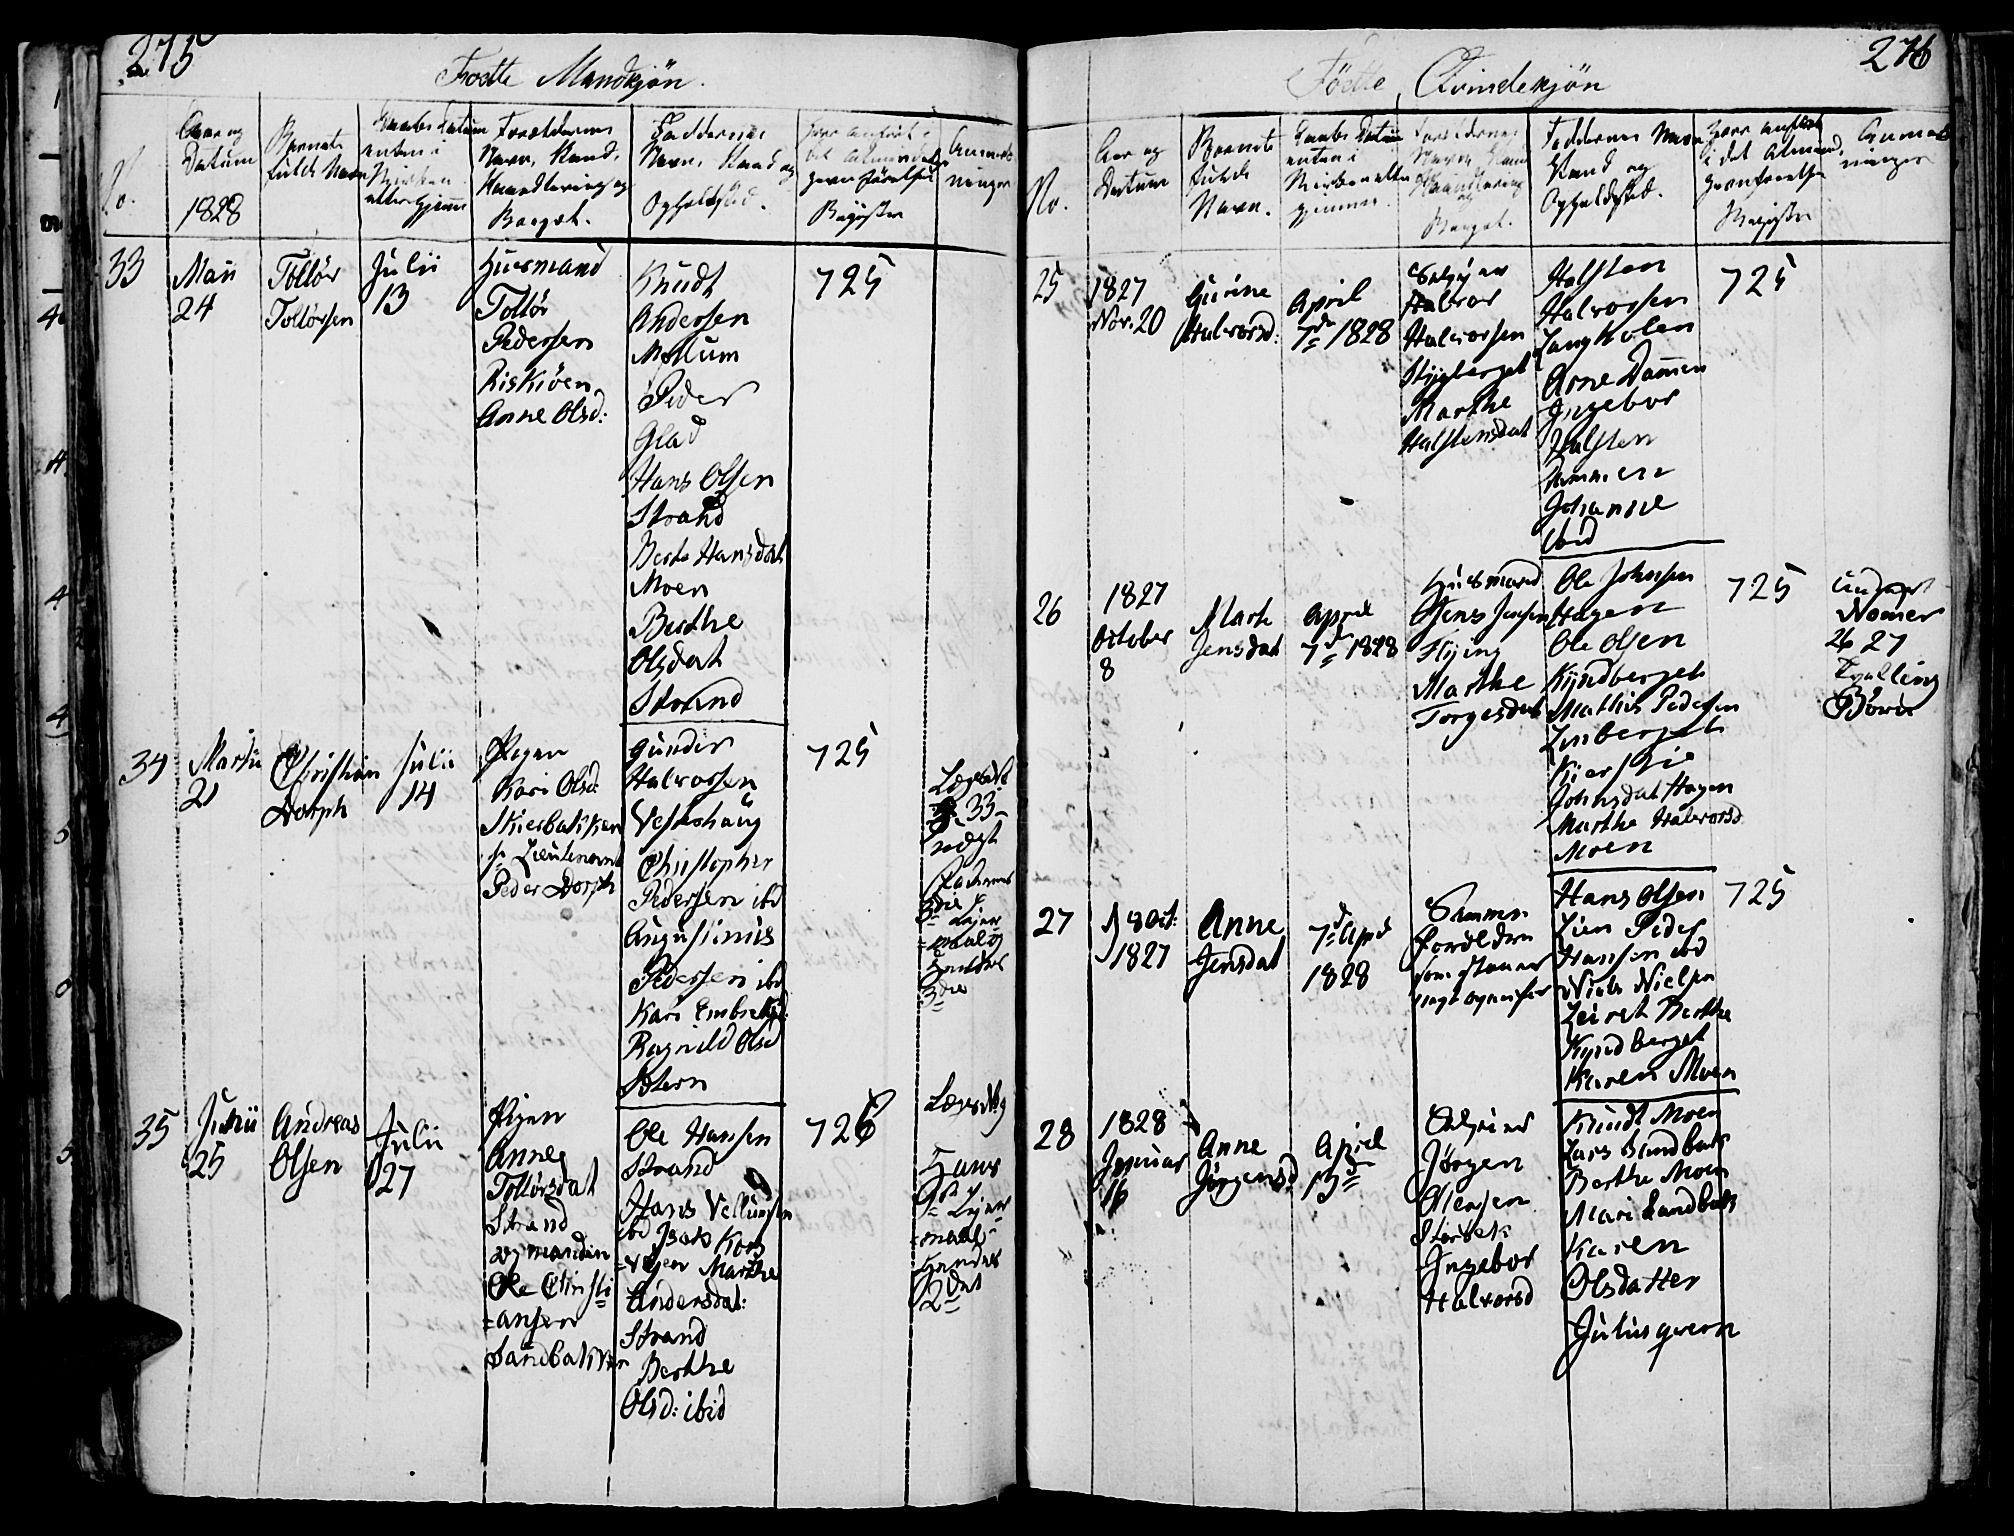 275
Foedte Mandkjøn.
No.
Aar og
Datum
1828
Barnets
fulde Navn
Daabs Datum
enten i
Kirken
eller hjemme
Forældrenes
Navn, Stand,
Haandtering og
Bopæl.
Faddernes
Navn, Stand og
Opholdsted.
Hvor anført i
det almindelige
Jevnførelses
Register
Anmærk
ninger
33
Maii
24
Tollør
Tollørsen
Julii
13
Huusmand
Tollør
Pedersen
Riskiøen
Anne Olsd:
Knudt
Andersen
Mellum
Peder
Glad
Hans Olsen
Strand
Berte Hansdat
Moen
Berthe
Olsdat
Strand
725
34
Martii
21
Christian
Dorph
Julii
14
Pigen
Kari Olsd:
Skierbakken
fr Lieutenant
Peder Dorph
Gunder
Halvorsen
Vestshaug
Christopher
Pedersen ibd
Augustinus
Pedersen ibd
Kari Embretsd:
Ragnild Olsd
Stern
725
33
3die
3die
35
Junii
25
Andreas
Olsen
Julii
27
Pigen
Anne
Tollørsdat
Strand
og manden
Ole Christi
=ansen
Sandbakken
Ole Hansen
Strand
Hans Vellumsen
ibd Isak Kors
=velgen Marthe
Andersdat:
Strand
Berthe
Olsd: ibid
726
Hans
Leyer
=maal
Hendes
2det
276
Födte Qvindekjön
No.
Aar og
Datum
Barnets
fulde
Navn.
Daabs Datum
enten i
Kirken eller
hjemme.
Forældrenes
Navn Stand
Haandtering
og
Bopæl.
Faddernes Navn
Stand og
Opholdsted.
Hvor anført
i det almind.
Jevnførelses
Register
Anmærk
ninger
25
1827
Nov. 20
Gurine
Halvorsd:
April
7de 1828
Halvor
Halvorsen
Stygberget
Marthe
Halstensdat
Halsten
Halvorsen
Langholen
Arne Dammen
Ingebor
Halsten
Dammen
Johanne
ibid
725
26
1827
October
8
Marte
Jensdat
April
7de 1828
Huusmand
Jens Jensen
Flying
Marthe
Torgesdat
Ole Johnsen
Hagen
Ole Olsen
Kyndberget
Mathis Pedersen
Linberget
Kierstie
Johnsdat Hagen
Marthe Halvorsd
Moen
725
Nomer
26 27
Tvilling
Börn
27
8 Oct:
1827
Anne
Jensdat
7de Apr
1828
Samme
Forældre
som staaer
Hans Olsen
Lien Peder
Hansen ibd
Niels Nielsen
Leiret Berthe
Kyndberget
Karen Moen
725
28
1828
Januar
16
Anne
Jørgensd
April
13de
Jørgen
Olensen
Størbek
Ingebor
Halvorsd
Knudt Moen
Lars Sundbak
Berthe Moen
Mari Sandbak
Karen
Olsdatter
Juliusqvern